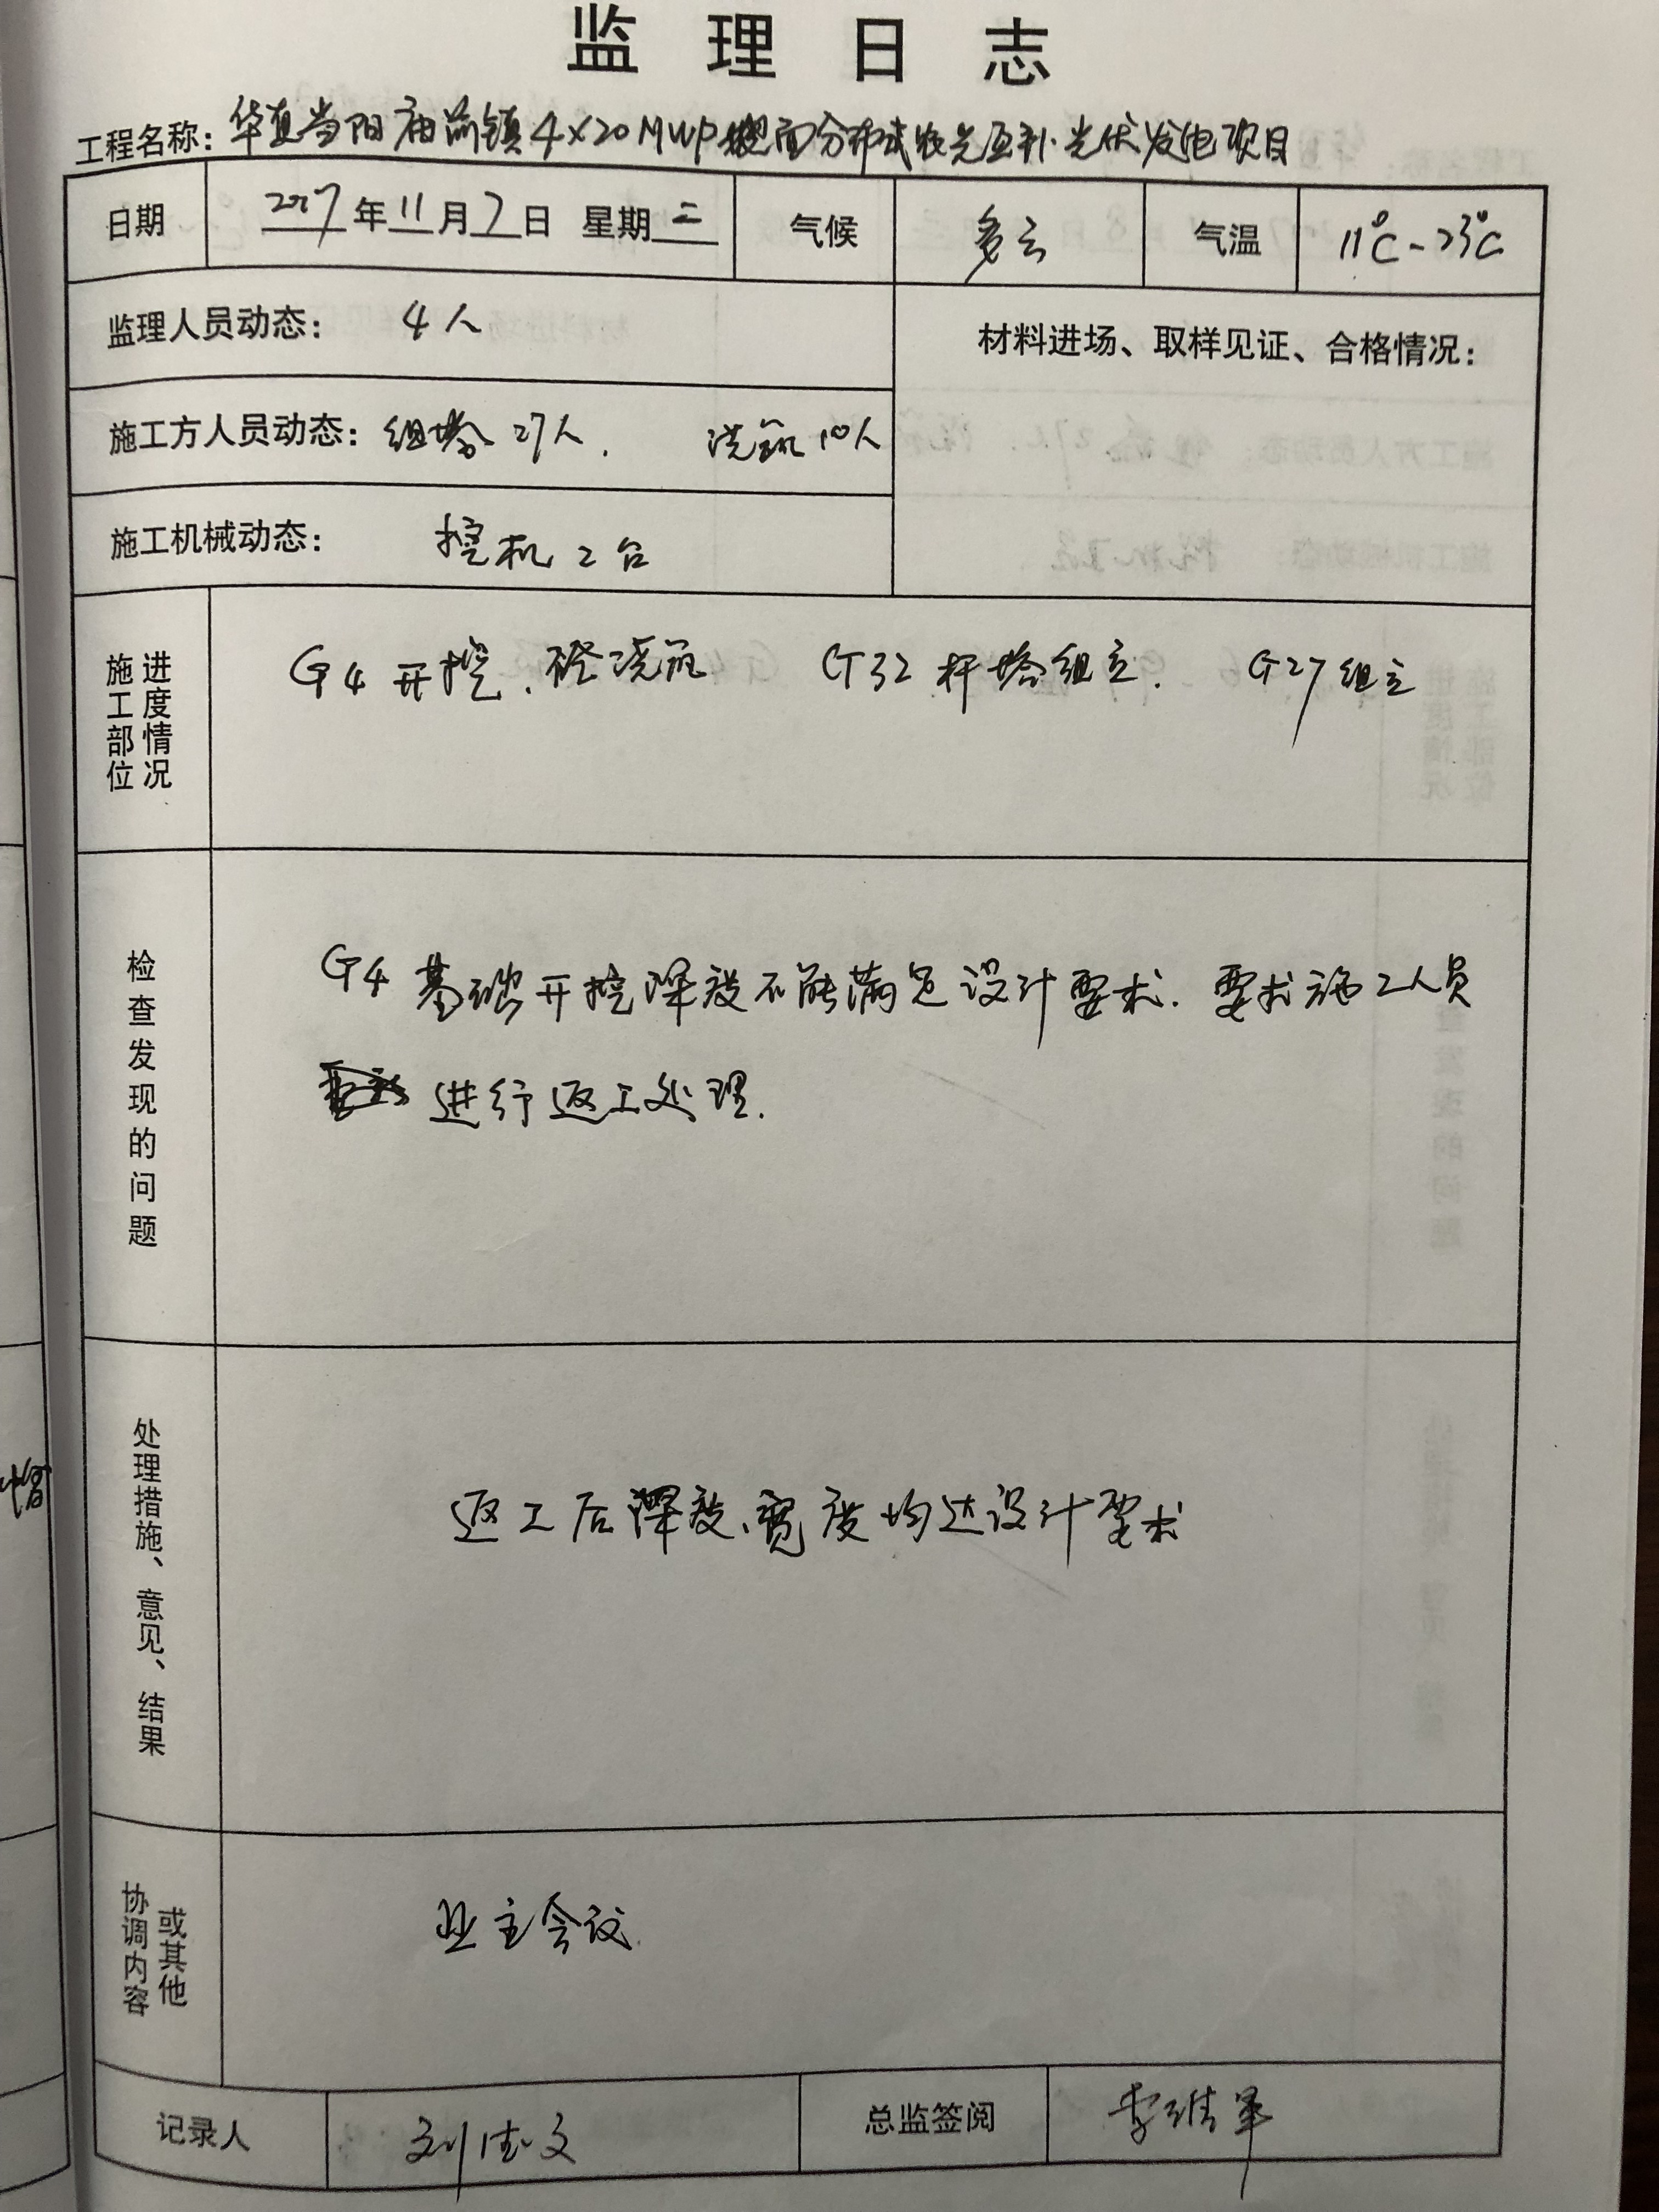 监理日志
工程名称：华夏当阳庙前镇4×20MWP地面分布式农光互补光伏发电项目
日期 2017年11月7日 星期二 气候 多云 气温 11℃-23℃
监理人员动态： 4人
材料进场、取样见证、合格情况：
施工方人员动态：组塔27人. 浇筑10人
施工机械动态： 挖机2台
施工部位进度情况
G4开挖、砼浇筑 G32杆塔组立. G27组立
检查发现的问题
G4基础开挖深度不能满足设计要求. 要求施工人员
进行返工处理.
处理措施、意见、结果
返工后深度、宽度均达设计要求
协调内容或其他
业主会议
记录人 刘德文 总监签阅 李维军